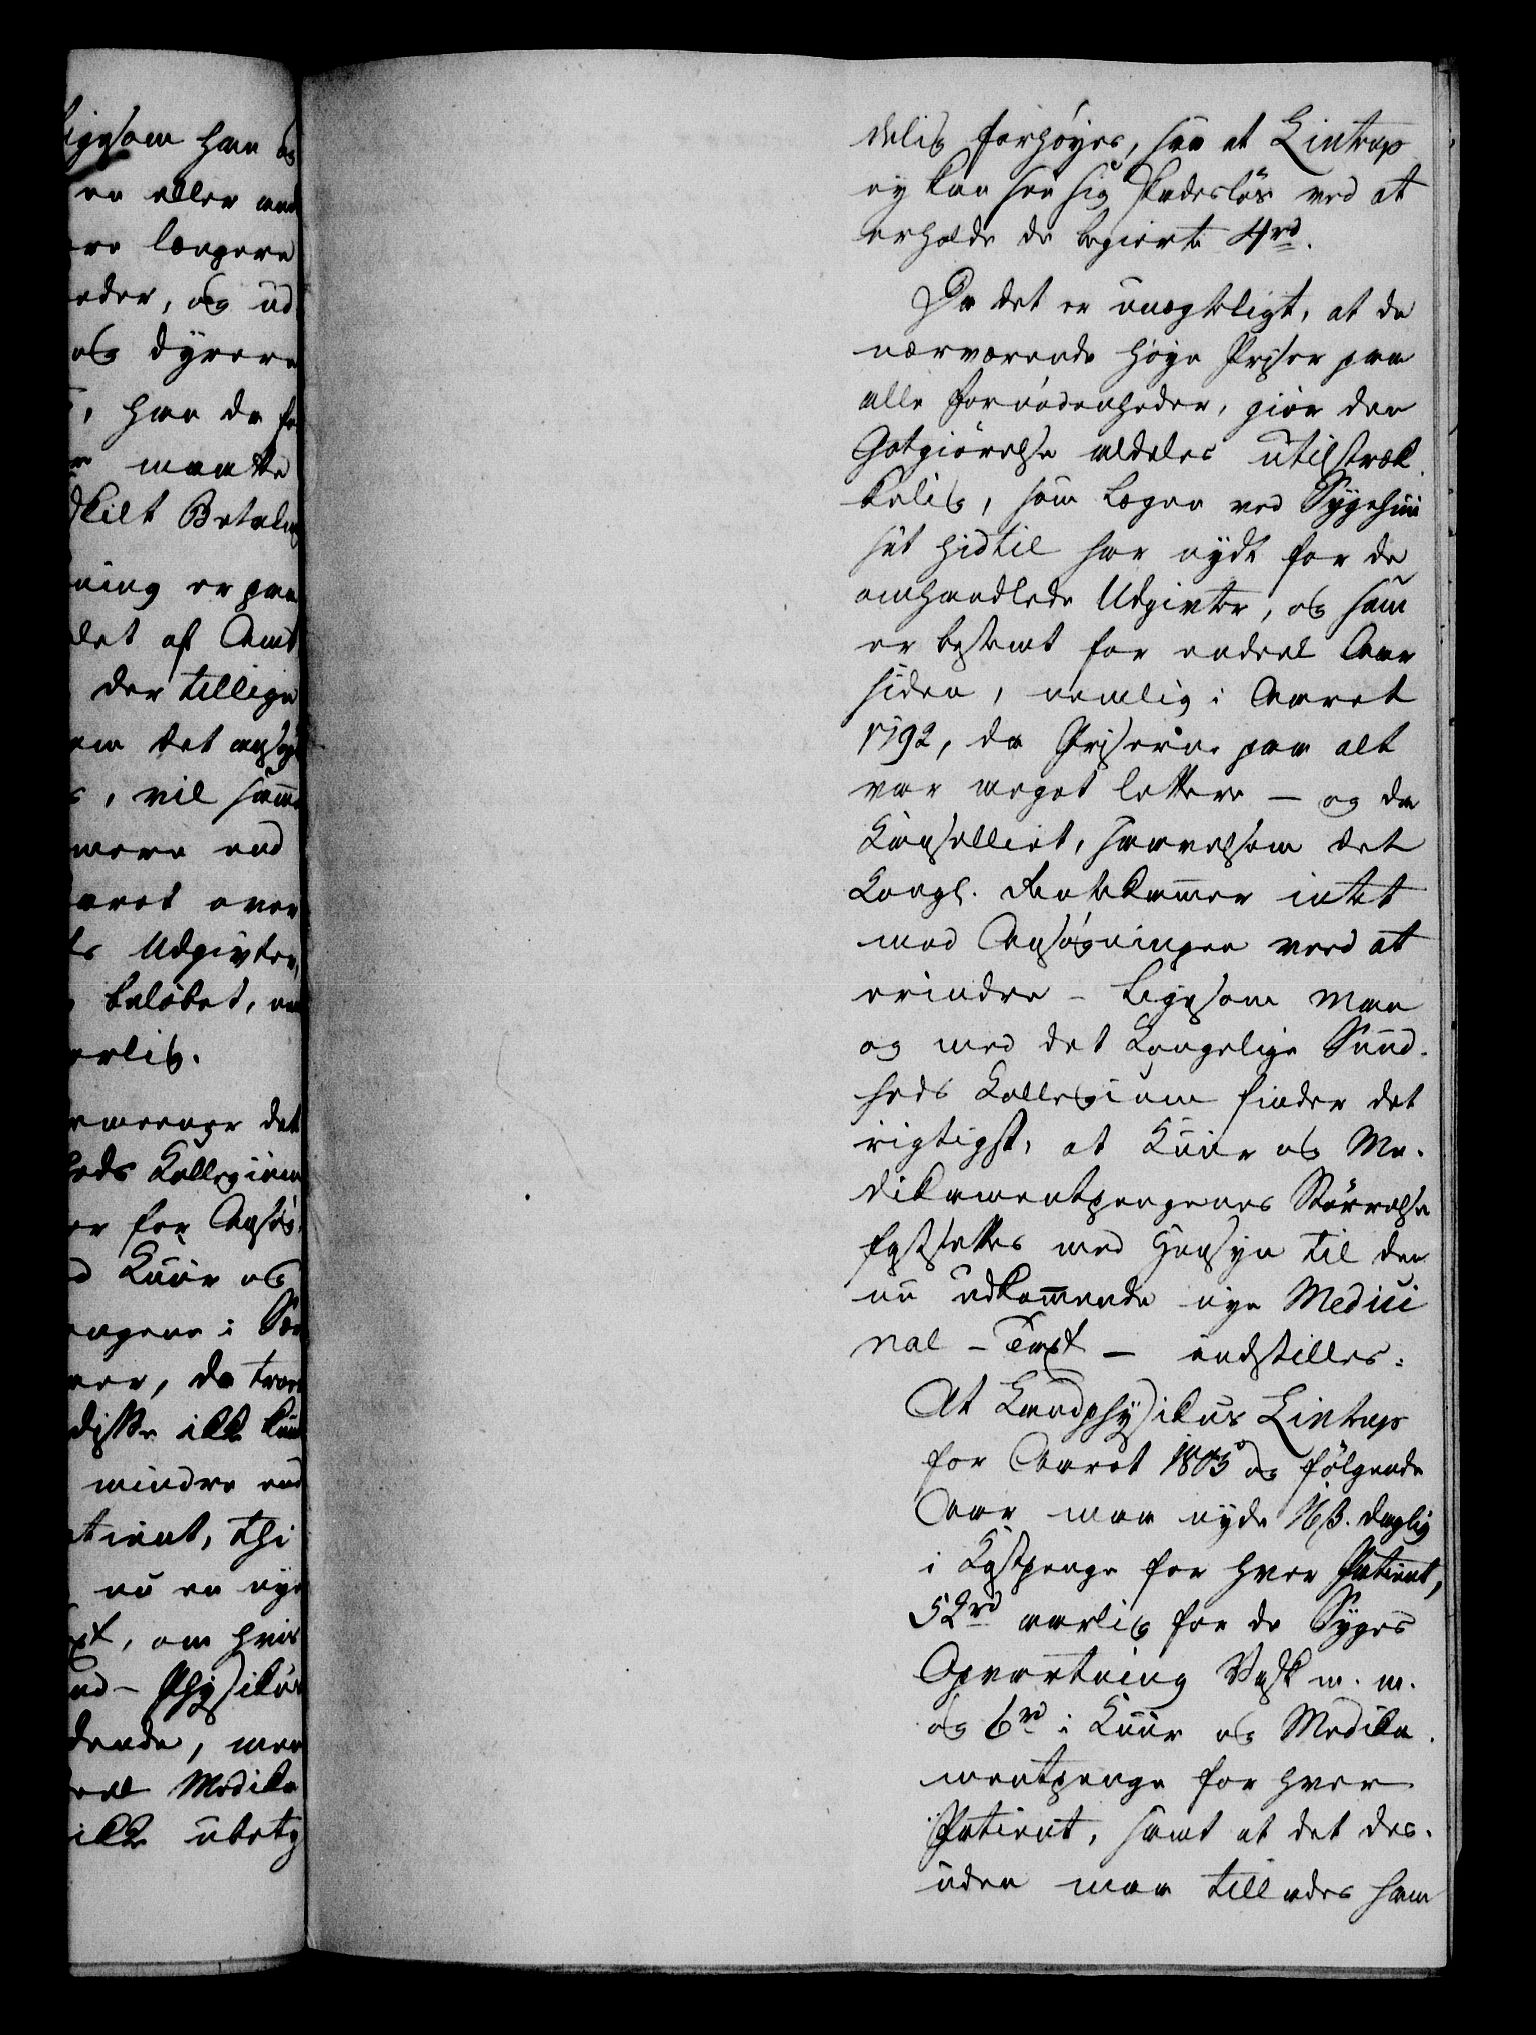 ligesom han og
en eller and
ere længere
eder, og ud
og dyrere
, har de fo
maatte
dkilt Betaling
ning er paa
det af Amt
der tillige
om det ansøgt
s, vil samme
mere end
aaret over
ts Udgivter,
beløbet, en
erlig.
rmeener det
heds Kollegium
er for Ansøg
d Kuur og
engene i Be
rer, da trae
diske ikke kun
mindre end
atient, thi
nu en nye
axt, om hvis
and-Physikus
dende, men
eel Medika
ikke ubety
delig forhøyes, saa at Lintrup
ey kan see sig skadesløs ved at
erholde de begierte 4rd.
Da det er unægteligt, at de
nærværende høye Priser paa
alle Fornødenheder, giør den
Gotgiørelse aldeles utilstræk
kelig, som Lægen ved Sygehuu
set hidtil har nydt for de
omhandlede Udgivter, og som
er bestemt for endeel Aar
siden, nemlig i Aaret
1792, da Priserne paa alt
var meget lettere – og da
Kancelliet, saavelsom det
Kongl. Rentekammer intet
mod Ansøgningen veed at
erindre – ligesom man
og med det Kongelige Sund-
heds Kollegium finder det
rigtigst, at Kuur og Me-
dikamentpengenes Størrelse
fastsettes med Hensyn til den
nu udkommende nye Medici
nal – Taxt – indstilles:
At Landphysikus Lintrup
for Aaret 1805 og følgende
Aar maa nyde 16 ß. daglig
i Kostpenge for hver Patient,
52rd aarlig for de Syges
Opvartning Vask m. m.
og 6rd i Kuur og Medika-
mentpenge for hver
Patient, samt at det des-
uden maa tillades ham